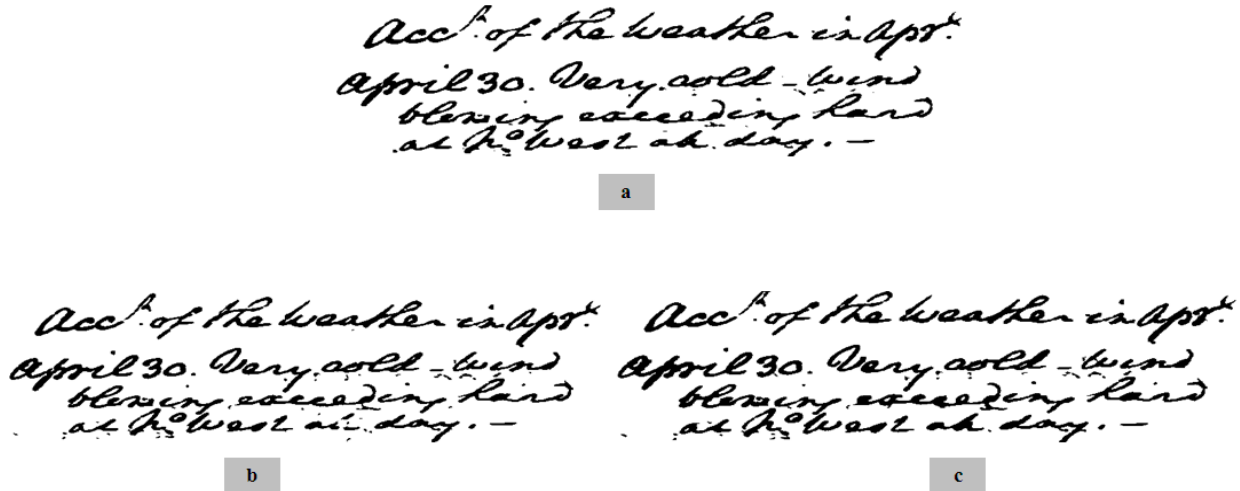 Acc^t. of the Weather in Apr^l.
April 30. Very cold - wind
blowing exceeding hard
at No West all day. -
a
Acc^t. of the Weather in Apr^l.
April 30. Very cold - wind
blowing exceeding hard
at No West all day. -
b
Acc^t. of the Weather in Apr^l.
April 30. Very cold - wind
blowing exceeding hard
at No West all day. -
c